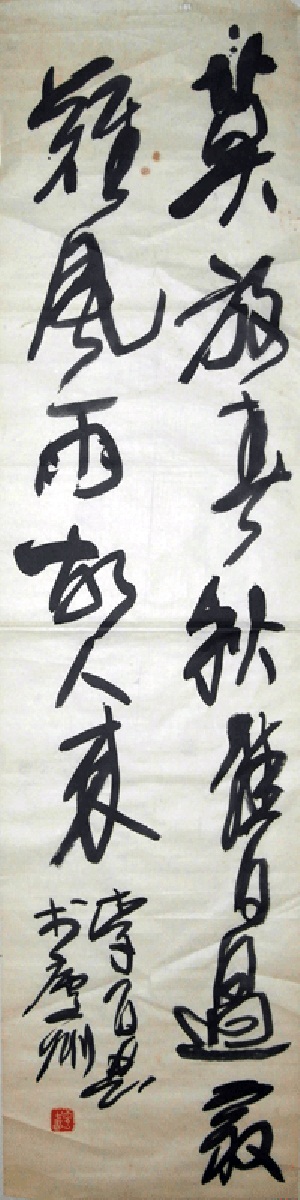 莫放春秋佳日過最
難風雨故人來
李百忍
於廬州